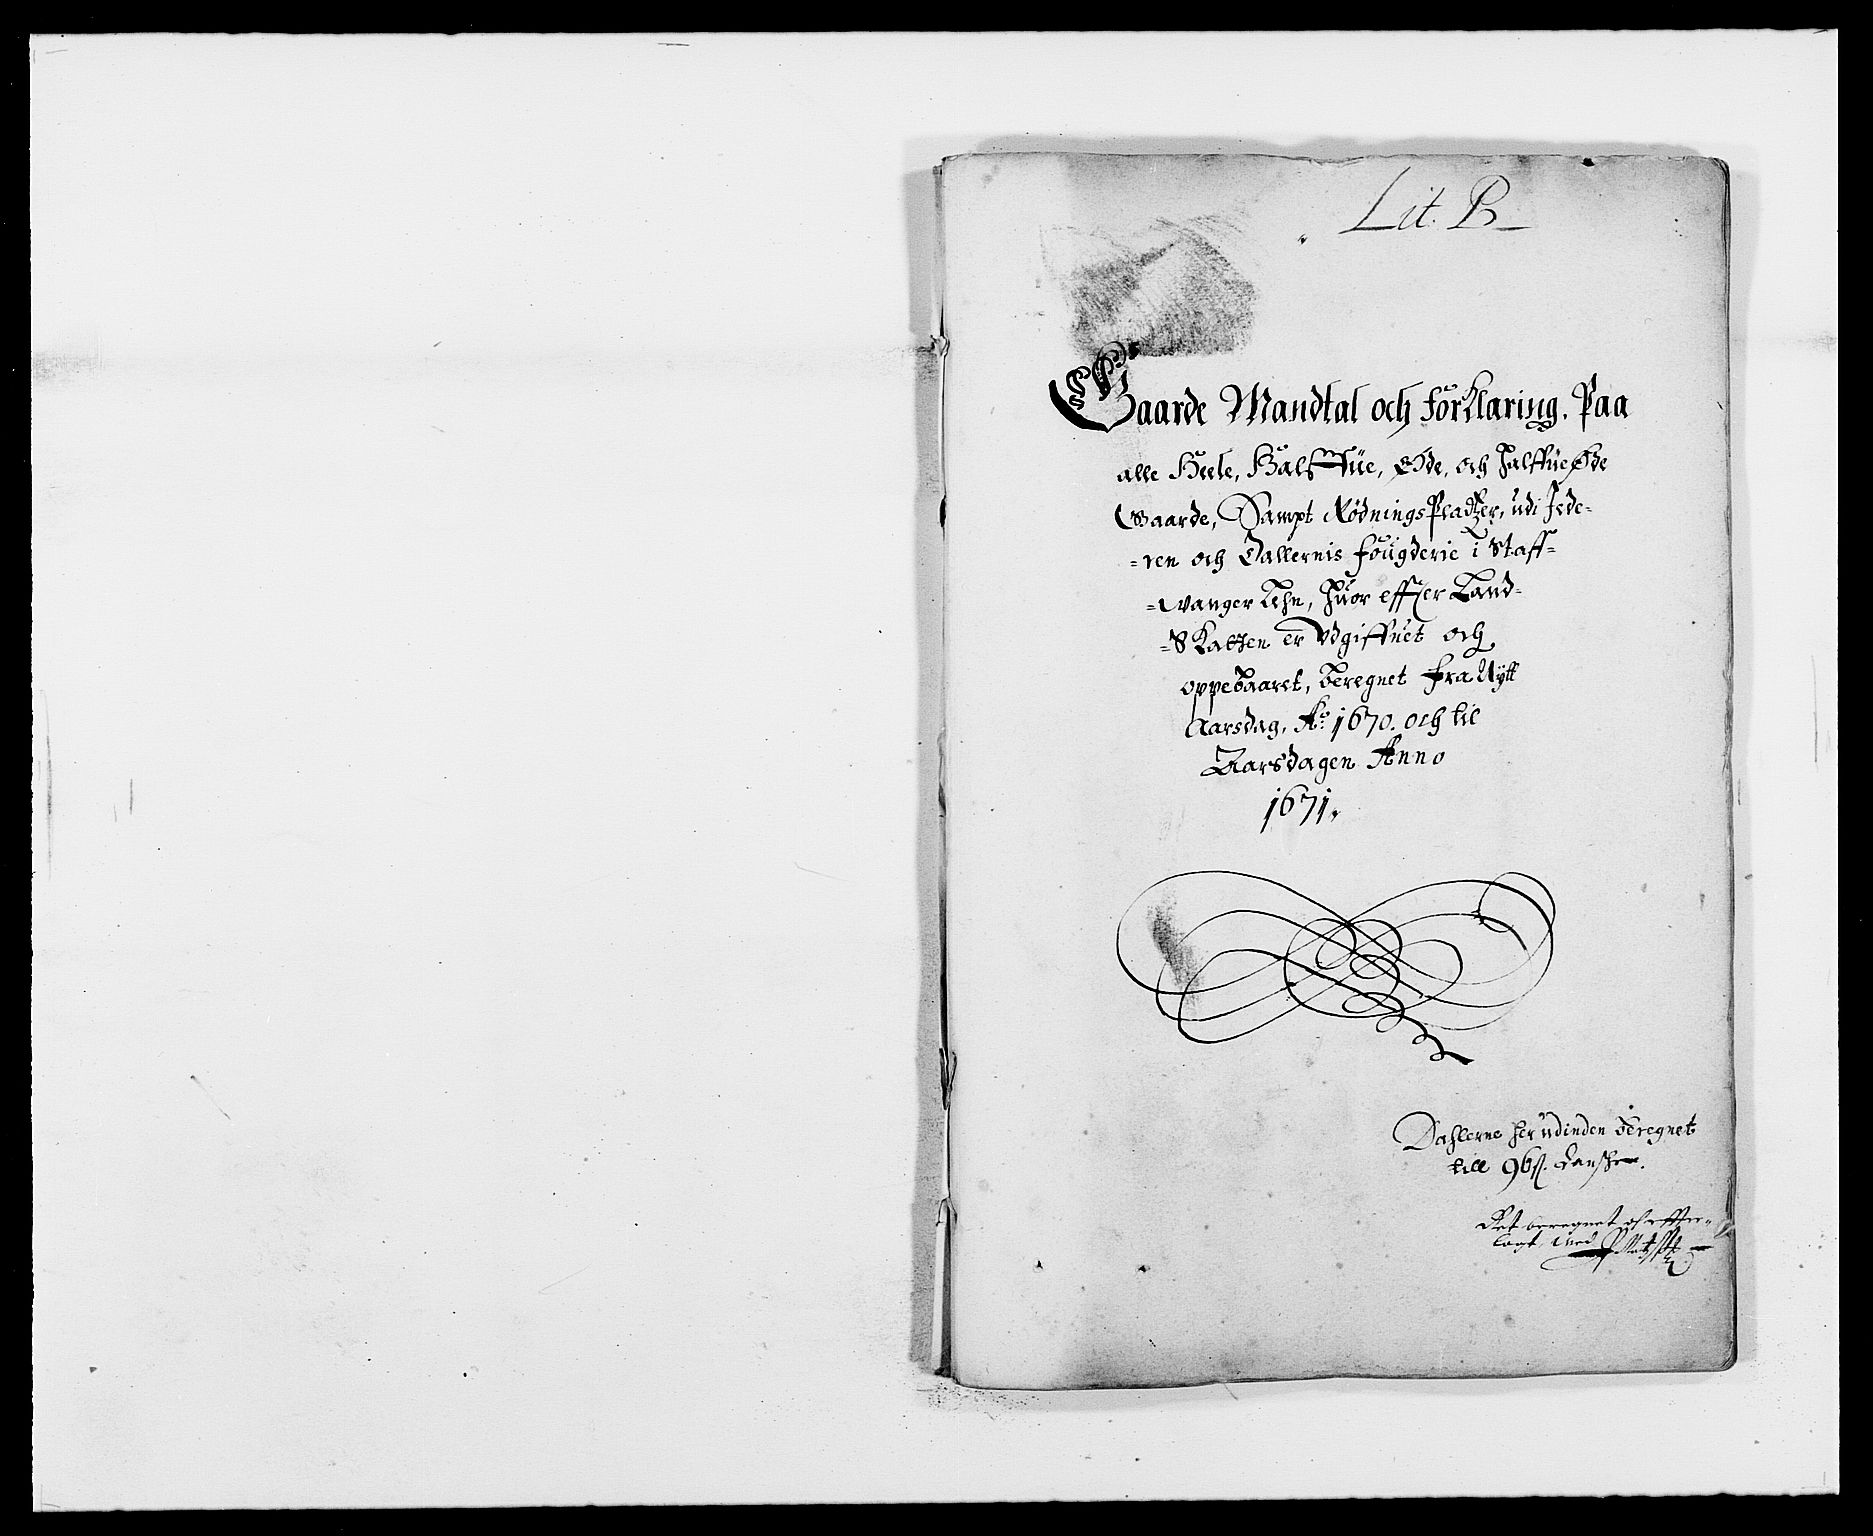 Lit. B
Gaarde Mandtal och forklaring. Paa
alle Heele, Halffüe, Øde, och Halffüe Øde
Gaarde, Sampt RødningsPladtzer, udi Jede-
-ren och Dallernis fougderie i Staff-
-wanger Lehn, Huor effter Land-
-Skatten er Udgiffuet och
oppebaaret, beregnet fra Nytt
Aarsdag, Aº 1670. och til
Aarsdagen Anno
1671.
Dahlerne her udinden beregnet
till 96 ß. Danske.
Ret beregnet och effter-
lagt med